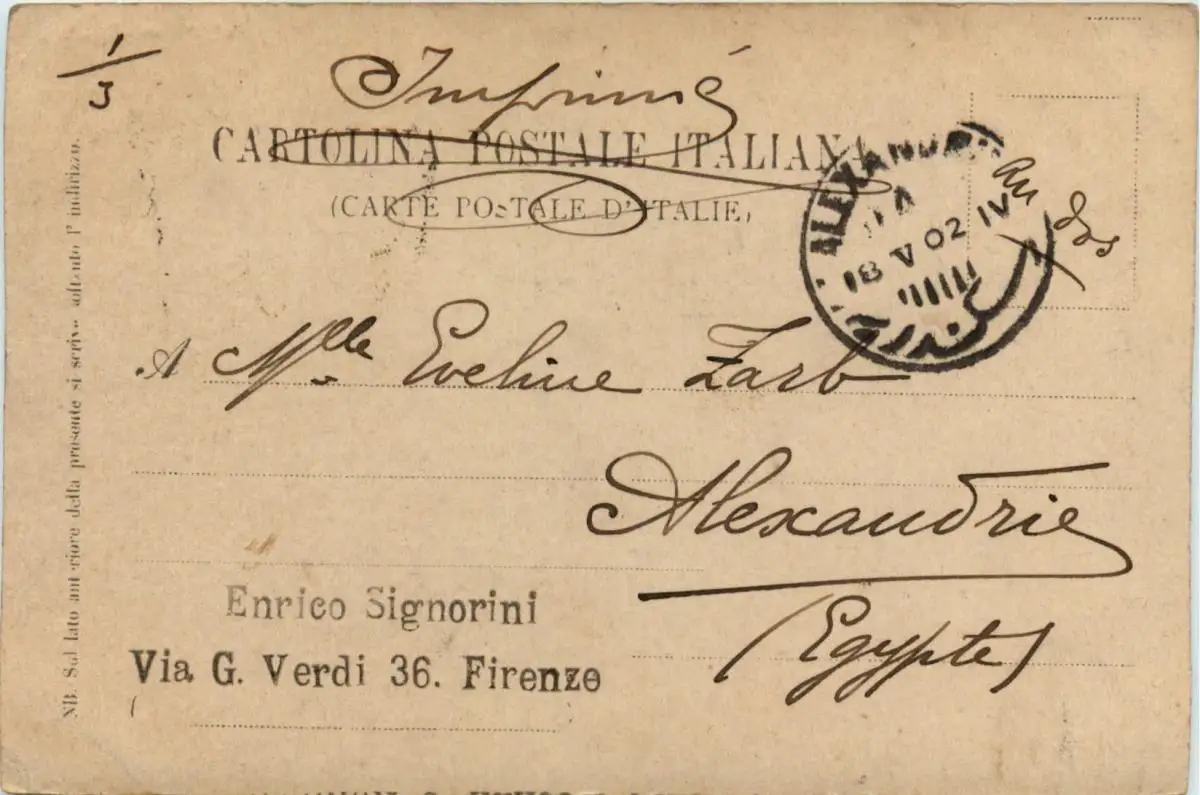 1/3
Imprimé
CARTOLINA POSTALE ITALIANA
(CARTE POSTALE D'ITALIE)
ALEXANDRIA
18 V 02 IV
au dos
A Mlle Eveline Zarb
Alexandrie
(Egypte)
Enrico Signorini
Via G. Verdi 36. Firenze
NB. Sul lato anteriore della presente si scrive soltanto l'indirizzo.